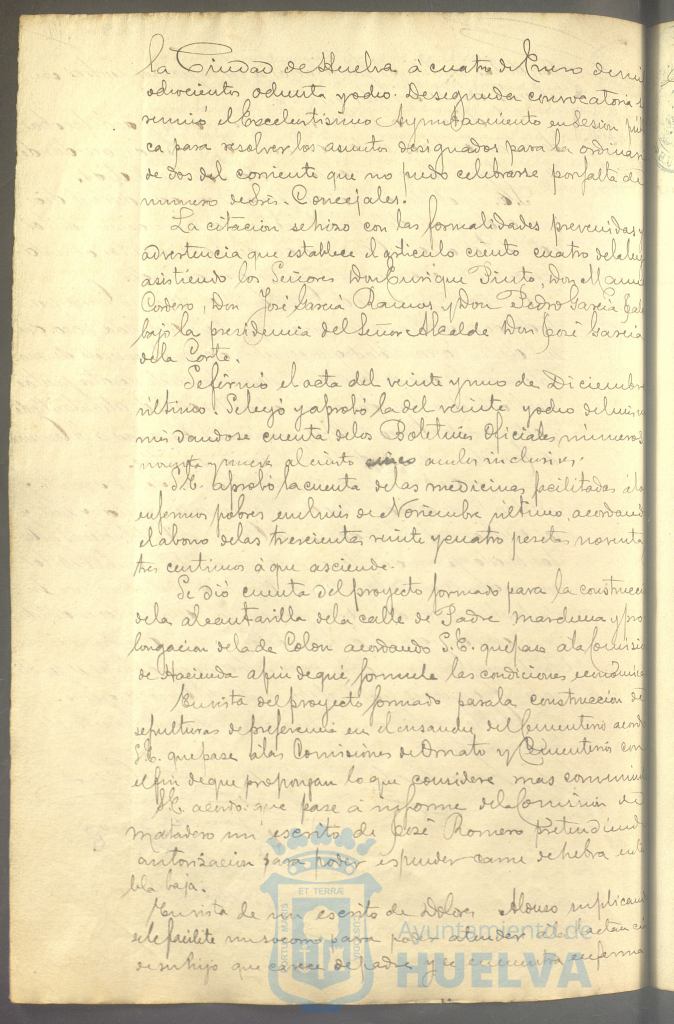 la Ciudad de Huelva á cuatro de Enero de mil
ochocientos ochenta y ocho. De segunda convocatoria se
reunió el Excelentísimo Ayuntamiento en sesion públi
ca para resolver los asuntos designados para la ordinaria
de dos del corriente que no pudo celebrarse por falta de
número de Sres. Concejales.
La citacion se hizo con las formalidades prevenidas y
advertencia que establece el artículo ciento cuatro de la ley
asistiendo los Señores Don Enrique Pinto, Don Manuel
Cordero, Don José García Ramos, y Don Pedro García
bajo la presidencia del Señor Alcalde Don José García
de la Corte.
Se firmó el acta del veinte y uno de Diciembre
último. Se leyó y aprobó la del veinte y ocho del mismo
mes dandose cuenta de los Boletines Oficiales números
noventa y nueve al ciento ambos inclusives.
S.E. aprobó la cuenta de las medicinas facilitadas á los
enfermos pobres en el mes de Noviembre último, acordando
el abono de las trescientas veinte y cuatro pesetas noventa
tres centimos á que asciende.
Se dió cuenta del proyecto formado para la construcci
de la alcantarilla de la calle de Padre Marchena y pro
longacion de la de Colon acordando S.E. que pase a la Comisio
de Hacienda a fin de que formule las condiciones económica
En vista del proyecto formado para la construccion de
sepulturas de preferencia en el ensanche del Cementerio acord
S.E. que pase á las Comisiones de Ornato y Cementerios con
el fin de que propongan lo que considere mas convenien
S.E. acordó que pase á informe de la Comision de
Matadero un escrito de José Romero pretendiend
autorizacion para poder espender carne de hebra en ta
bla baja.
En vista de un escrito de Dolores Alonso suplicand
se le facilite un socorro para poder atender á la lactanci
de su hijo que carece de padre y se encuentra enferma
ET TERRÆ
PORTUS MARIS
CUSTODIA
Ayuntamiento de
HUELVA